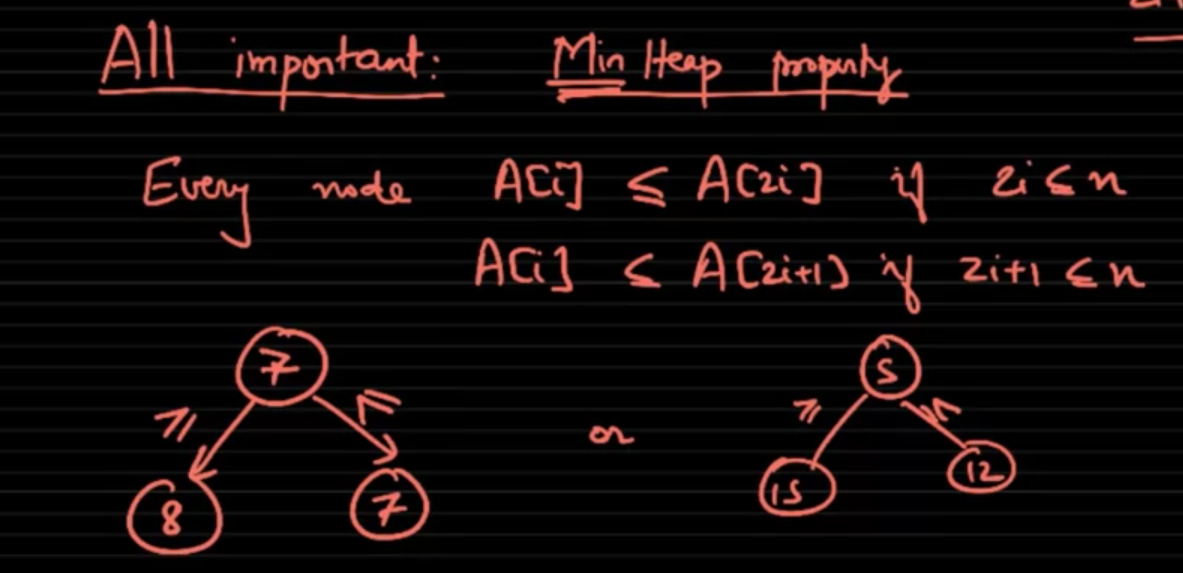 All important: Min Heap property
Every node A[i] ≤ A[2i] if 2i ≤ n
A[i] ≤ A[2i+1] if 2i+1 ≤ n
7
≤
≤
8
7
or
5
≤
≤
15
12